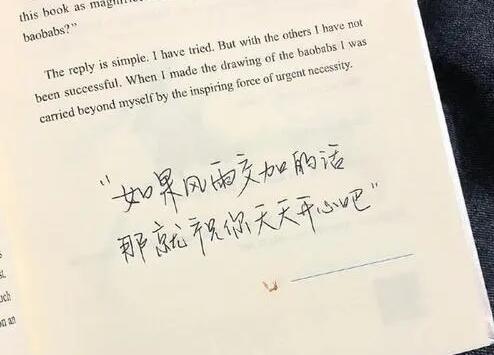 this book as magnific
baobabs?"
The reply is simple. I have tried. But with the others I have not
been successful. When I made the drawing of the baobabs I was
carried beyond myself by the inspiring force of urgent necessity.
"如果风雨交加的话
那就祝你天天开心吧"